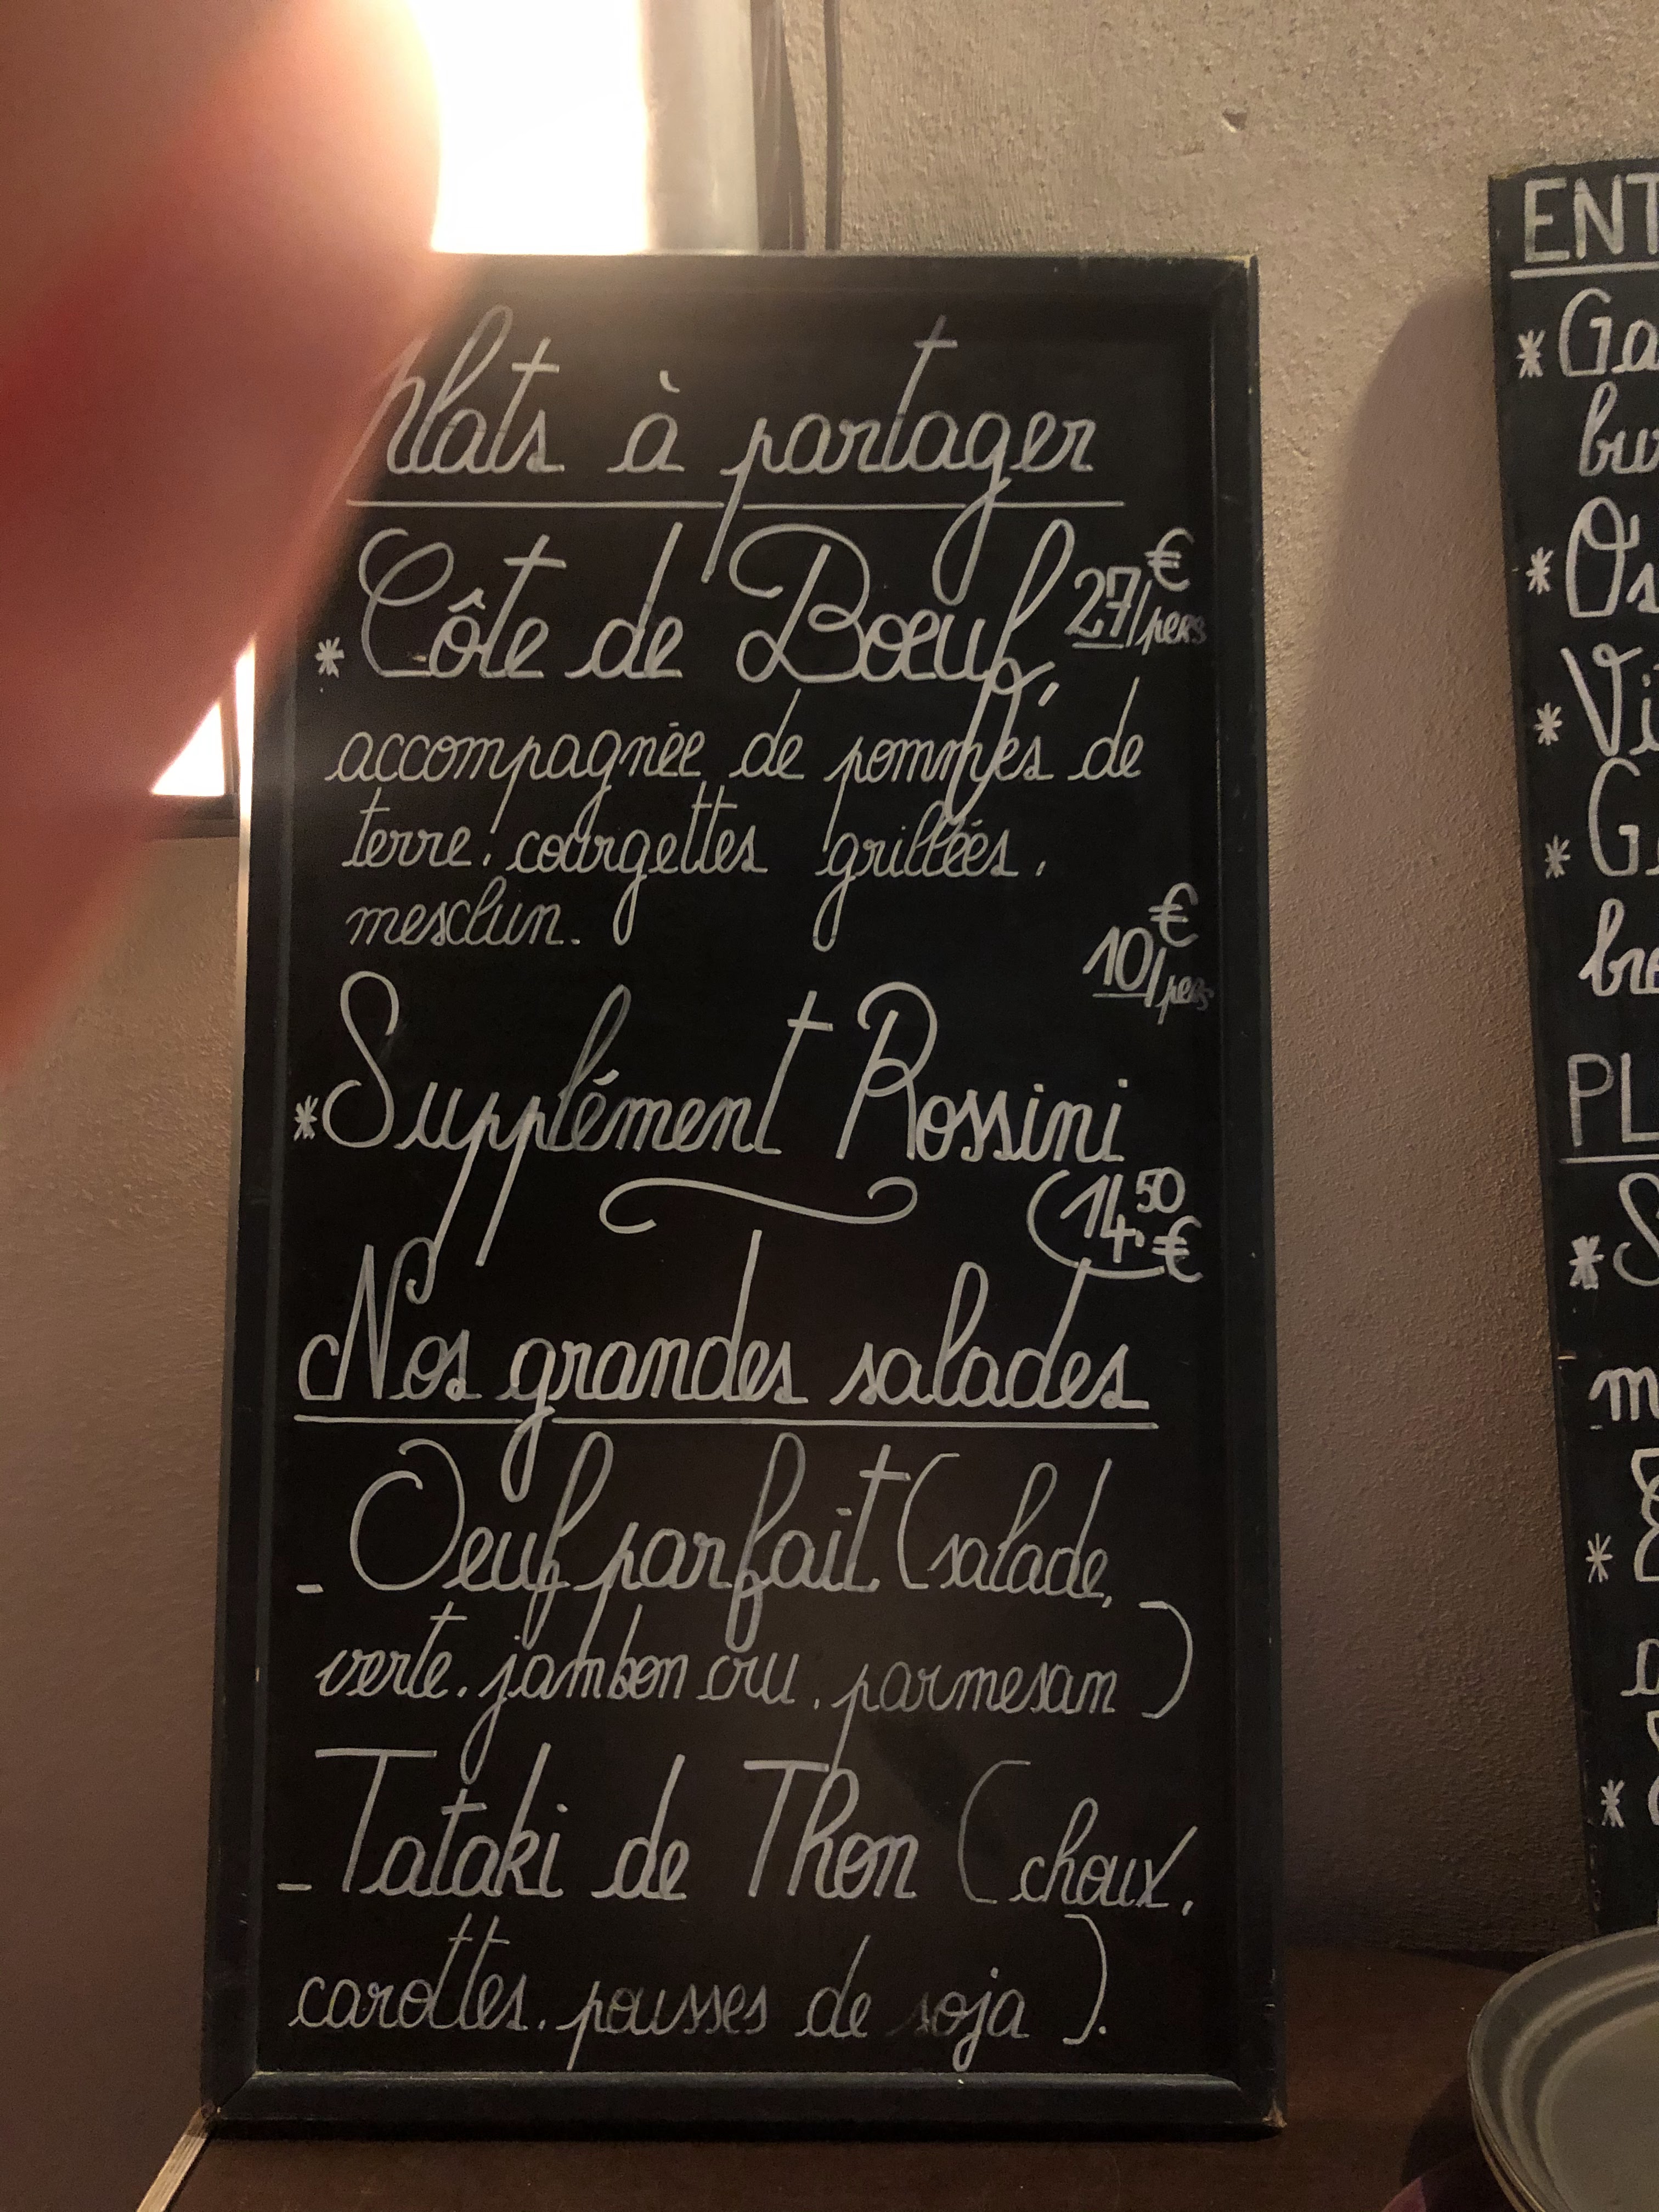 Plats à partager
* Côte de Bœuf, 27€/pers
accompagnée de pommes de
terre, courgettes grillées,
mesclun.
10€/pers
* Supplément Rossini
14.50€
Nos grandes salades
- Oeuf parfait (salade,
verte, jambon cru, parmesan)
- Tataki de Thon (choux,
carottes, pousses de soja).
ENT
* Ga
bu
* Os
* Vi
* G
br
PL
* S
m